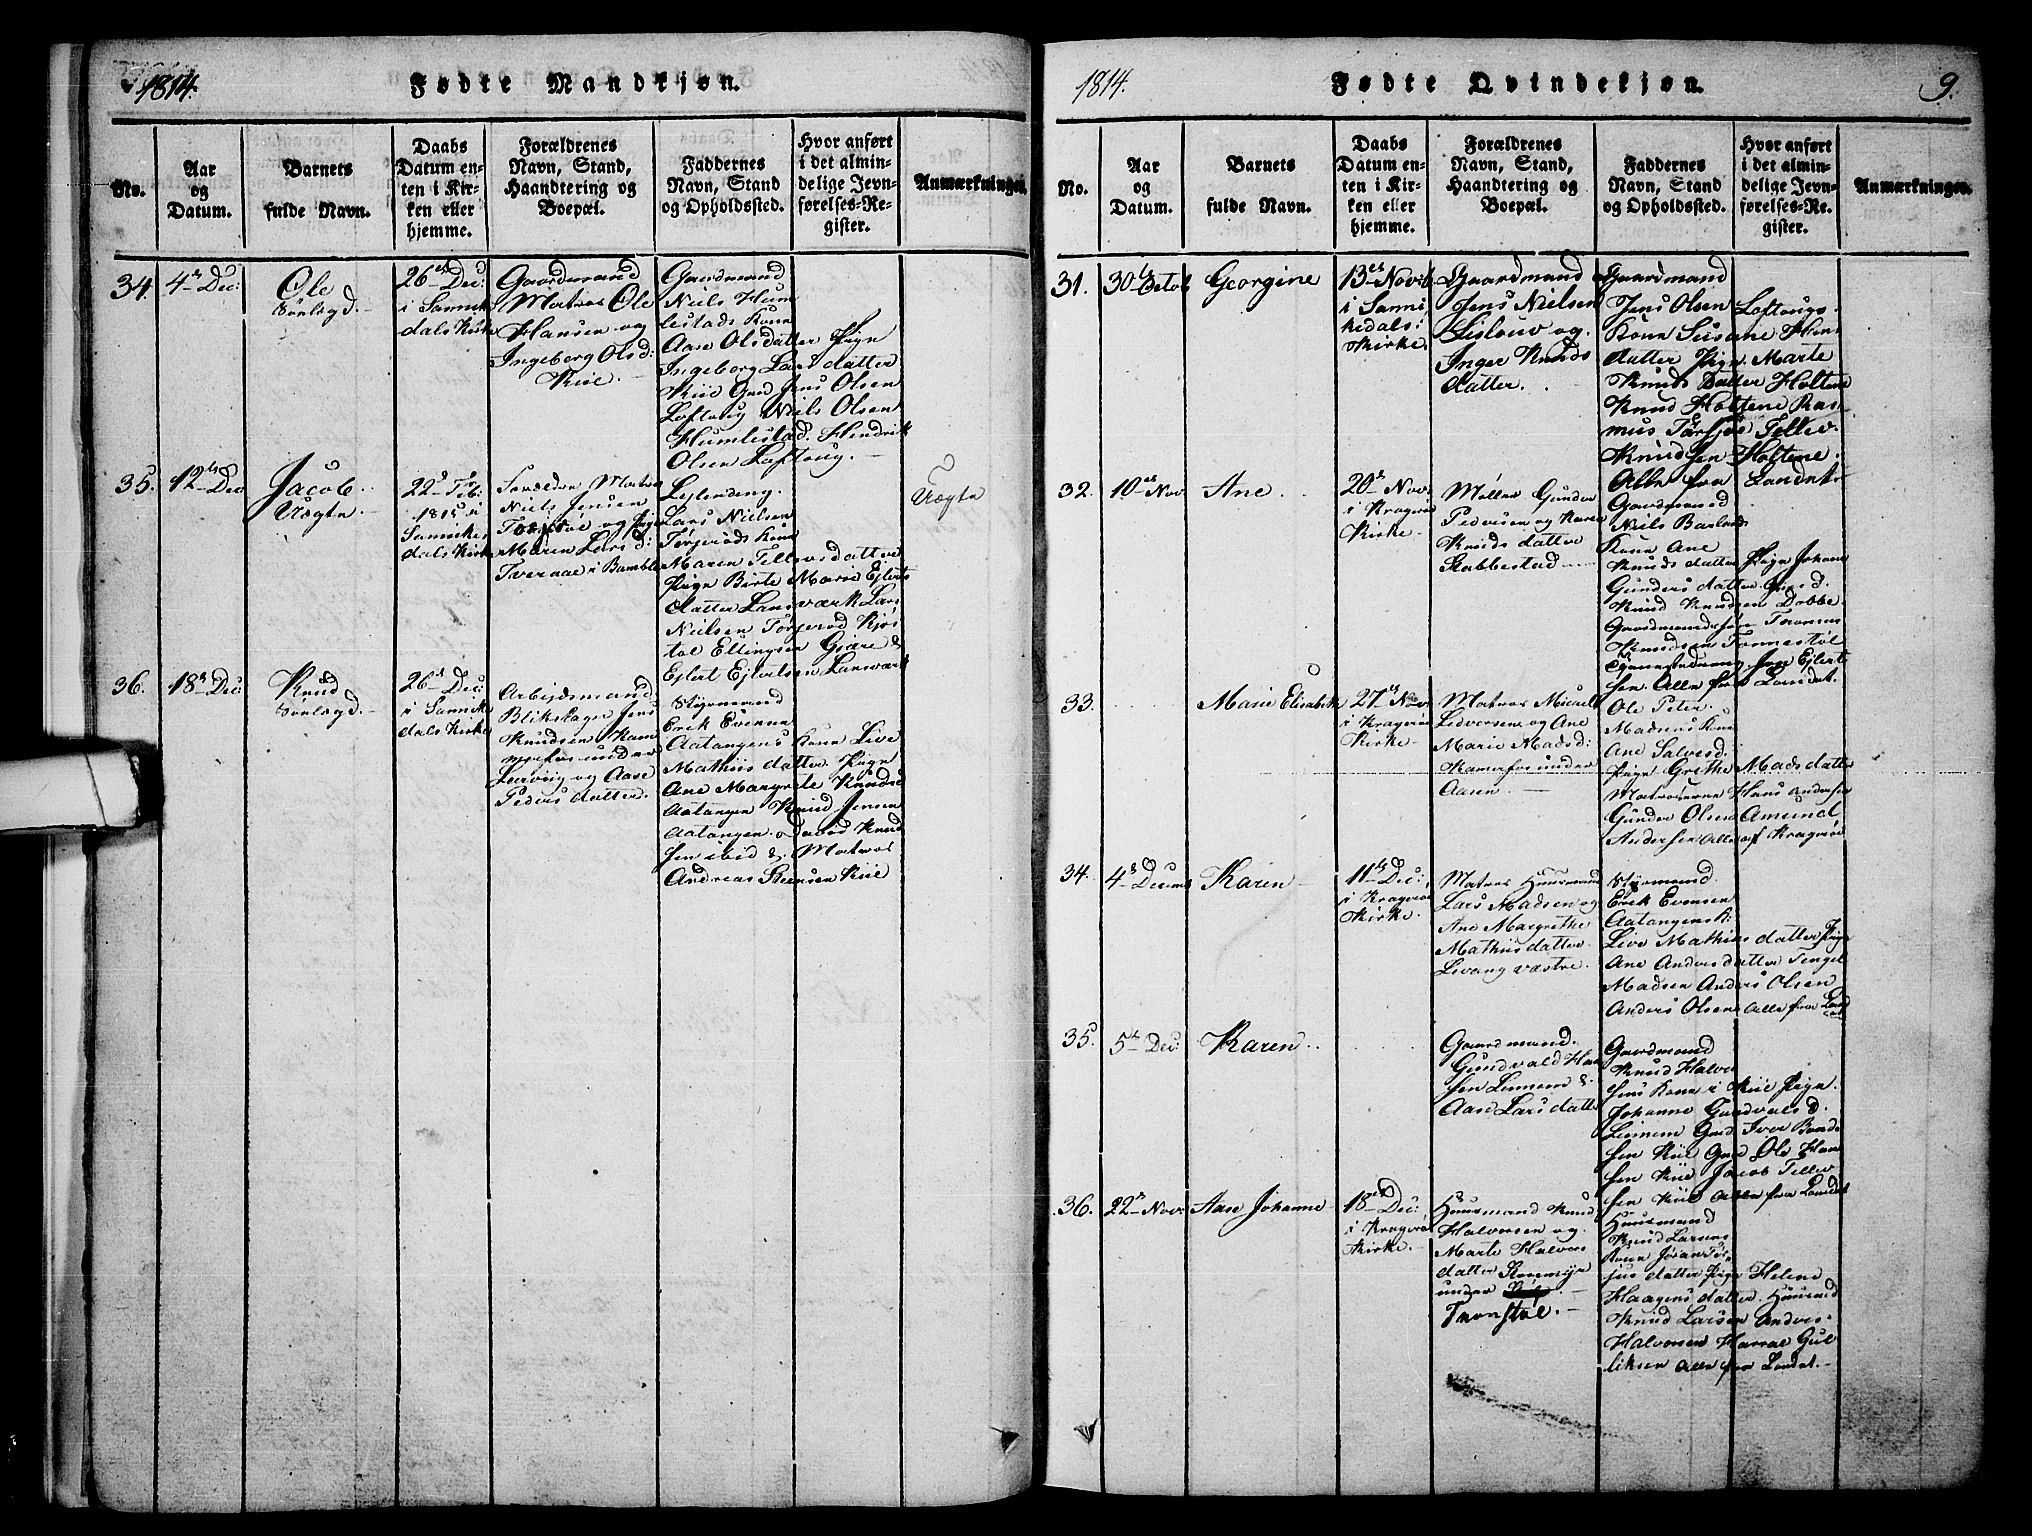 1814.
Fødte Mandkjøn.
No.
Aar
og
Datum.
Barnets
fulde Navn.
Daabs
Datum en-
ten i Kir-
ken eller
hjemme.
Forældrenes
Navn, Stand,
Haandtering og
Boepæl.
Faddernes
Navn, Stand
og Opholdssted.
Hvor anført
i det almin-
delige Jevn-
førelses-Re-
gister.
Anmærkninger.
34.
4de Dec:
Ole
26de Dec:
i Sannike
dals Kirke
Gaardmand
Matros Ole
Hansen og
Ingeborg Olsd:
Kiie.
Gaardmand
Niels Hum
lestads Kone
Aase Olsdatter Pige
Ingeborg Lars datter
Kiie Gmd Jens Olsen
Loftoug Niels Olsen
Humlestad. Hendrik
Olsen Loftoug.
35.
12te Dec
Jacob
Uægte.
22de Feb:
1815 i
Sannike
dals Kirke
Matros
Niels Jensen
og Pige
Maren Lars d:
Tveraae i Bamble
Lars Nielsen
Tørjerøds Kone
Maren Tellevsdatter
Pige Birte Marie Ejlerts
datter Lansværk Lars
Nielsen Tørjerød Kjøs
tol Ellingsen Gjære &
Ejlert Ejlertsen Lansværk
Uægte
36.
18de Dec
Knud
26de Dec:
i Sannike
dals Kirke
Arbejdsmand
Blikslager Jens
Knudsen Kam
merfos under
Lervig og Aase
Peders datter.
Styrmand
Erik Evensen
Aatangens Kone Live
Mathiis datter. Pige
Ane Margrete Knudsd
Aatangen Knud Jensen
Aatangen. David Knud
sen ibid & Matros
Andreas Steensen Kiie
1814.
Fødte Qvindekjøn.
9.
No.
Aar
og
Datum.
Barnets
fulde Navn.
Daabs
Datum en-
ten i Kir-
ken eller
hjemme.
Forældrenes
Navn, Stand,
Haandtering og
Boepæl.
Faddernes
Navn, Stand
og Opholdssted.
Hvor anført
i det almin-
delige Jevn-
førelses-Re-
gister.
Anmærkninger.
31.
30te Octob
Georgine
13de Novb
i Sanni
kedals
Kirke.
Gaardmand
Jens Nielsen
Lislouw og
Inger Knuds
datter.
Gaardmand
Jens Olsen Loftougs
Kone Susane Hans
datter Pige Marte
Knuds Datter Holtene
Knud Holtene Ras
mus Tørsjøe Tellev
Knudsen Holtene.
Alle fra Landet
32.
10de Nov.
Ane
20de Nov.
i Kragerø
Kirke
Møller Gunder
Pedersen og Karen
Knids datter
Stabbestad
Gaardmand
Niels Barland
Kone Ane
Knuds datter Pige Johane
Gunders datter
Knud Knudsen Dobbe
Gaardmandsøn Thomas
Knudsen Tonnestøl
Jens Ejlert
sen. Alle fra Landet.
33.
Marie Elisabeth
27de Nov.
i Kragerøe
Kirke
Matros Micaell
Sedversen og Ane
Marie Madsd:
Kamerfos under
Aasen.
Ole Peter
Madsens Kone
Ane Salvesd.
Pige Grethe Mads datter
Matroserne Hans Andersen
Gunder Olsen Amund
Andersen Alle af Kragerøe
34.
4de Decemb
Karen
11te Dec:
i Kragerøe
Kirke.
Matros Huusmand
Lars Madsen og
Ane Margrethe
Mathiisdatter
Levang væstre.
Styrmand
Erik Evensen
Aatangens K:
Live Mathiis datter Pige
Ane Anders datter Tengel
Madsen Anders Olsen
Anders Olsen Alle fra Land
35.
5te Dec:
Karen
Gaardmand
Gundvald Han
sen Linnem &
Aase Lars datter
Gaardmand
Knud Halvor
sens Kone i Kiie Pige
Johanne Gundvalsd.
Linnem Gmd Iver Bends
sen Kiie Gmd Ole Han
sen Kiie Jacob Tellev
sen Kiie Alle fra Landet
36.
22de Nov.
Aase Johanne
18de Dec:
i Kragerøe
Kirke
Huusmand Knud
Halvorsen og
Marte Halvors
datter Rosemyr
under
Tronstøe.
Huusmand
Knud Larsens
Kone Jøran Tør
jus datter Pige Helene
Haagens datter. Huusmd
Knud Larsen Anders
Halvorsen Harral Gul
liksen Alle fra Landet